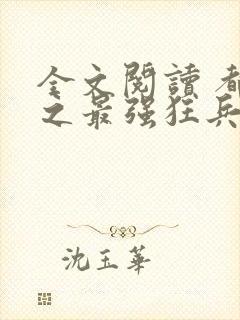 全文閱讀 都
之最强狂兵
沈玉華